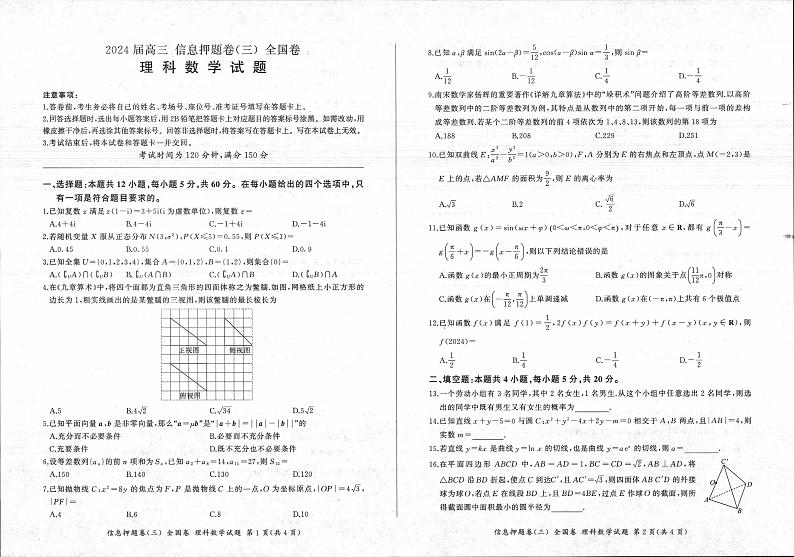 2024届高三 信息押题卷(三) 全国卷
理科数学试题
注意事项:
1.答卷前,考生务必将自己的姓名、考场号、座位号、准考证号填写在答题卡上。
2.回答选择题时,选出每小题答案后,用2B铅笔把答题卡上对应题目的答案标号涂黑。如需改动,用
橡皮擦干净后,再选涂其他答案标号。回答非选择题时,将答案写在答题卡上。写在本试卷上无效。
3.考试结束后,将本试卷和答题卡一并交回。
考试时间为120分钟,满分150分
一、选择题:本题共12小题,每小题5分,共60分。在每小题给出的四个选项中,只
有一项是符合题目要求的。
1.已知复数z满足z(1-i)=3+5i(i为虚数单位),则复数z=
A.4+4i B.4-4i C.-1+4i D.-1-4i
2.若随机变量X服从正态分布N(3,σ²),P(X≤5)=0.55,则P(X≤1)=
A.0.45 B.0.55 C.0.1 D.0.9
3.已知全集U={0,1,2,3,4},集合A={0,1,2},B={1,2},则集合{0}=
A.(∁UA)∩(∁UB) B.∁U(A∩B) C.(∁UA)∩B D.(∁UB)∩A
4.在《九章算术》中,将四个面都为直角三角形的四面体称之为鳖臑.如图,网格纸上小正方形的
边长为1,粗实线画出的是某鳖臑的三视图,则该鳖臑的最长棱长为
正视图 侧视图
俯视图
A.5 B.4√2 C.√34 D.5√2
5.已知平面向量a,b是非零向量,那么“a=μb”是“|a+b|=||a|-|b||”的
A.充分而不必要条件 B.必要而不充分条件
C.充要条件 D.既不充分也不必要条件
6.设等差数列{aₙ}的前n项和为Sₙ,已知a₂+a₈=14,a₁₁=27,则S₁₂=
A.150 B.140 C.130 D.120
7.已知抛物线C:x²=8y的焦点为F,P是抛物线C上的一点,O为坐标原点,|OP|=4√3,
|PF|=
A.4 B.6 C.8 D.10
信息押题卷(三) 全国卷 理科数学试题 第1页(共4页)
8.已知α,β满足sin(2α-β)=5/12,cos(α-β)sin α=1/3,则sin β=
A.1/12 B.-1/12 C.1/4 D.-1/4
9.南宋数学家杨辉的重要著作《详解九章算法》中的“垛积术”问题介绍了高阶等差数列.以高阶
等差数列中的二阶等差数列为例,其特点是从数列中的第二项开始,每一项与前一项的差构
成等差数列.若某个二阶等差数列的前4项依次为1、4、8、13,则该数列的第18项为
A.188 B.208 C.229 D.251
10.已知双曲线E:x²/a²-y²/b²=1(a>0,b>0),F,A分别为E的右焦点和左顶点,点M(-2,3)是
E上的点,若△AMF的面积为9/2,则E的离心率为
A.√3 B.2 C.√6/2 D.√6
11.已知函数g(x)=sin(ωx+φ)(0<ω<π,0<φ<π),对于任意x∈R,都有g(π/3-x)=
g(π/6+x)=-g(x-π/6),则以下列结论错误的是
A.函数g(x)的最小正周期为2π/3 B.函数g(x)的图象关于点(11/12π,0)对称
C.函数g(x)在(-π/12,π/12)上单调递减 D.函数g(x)在(-π,π)上共有6个极值点
12.已知函数f(x)满足f(1)=1/2,2f(x)f(y)=f(x+y)+f(x-y)(x,y∈R),则
f(2024)=
A.1/2 B.1/4 C.-1/4 D.-1/2
二、填空题:本题共4小题,每小题5分,共20分。
13.一个劳动小组有3名同学,其中2名女生,1名男生.从这个小组中任意选出2名同学,则选
出的同学中既有男生又有女生的概率为________.
14.已知直线x+y-5=0与圆C:x²+y²-4x+2y-m=0相交于A,B两点,且|AB|=4,则
实数m=________.
15.若直线y=kx是曲线y=ln x的切线,也是曲线y=aeˣ的切线,则a=________.
16.在平面四边形ABCD中,AB=AD=1,BC=CD=√2,AB⊥AD,将
△BCD沿BD折起,使点C到达C′,且AC′=√3,则四面体ABC′D的外接
球为球O,若点E在线段BD上,且BD=4BE,过点E作球O的截面,则所
得截面圆中面积最小的圆半径为________.
C′
O
D
B
A
信息押题卷(三) 全国卷 理科数学试题 第2页(共4页)